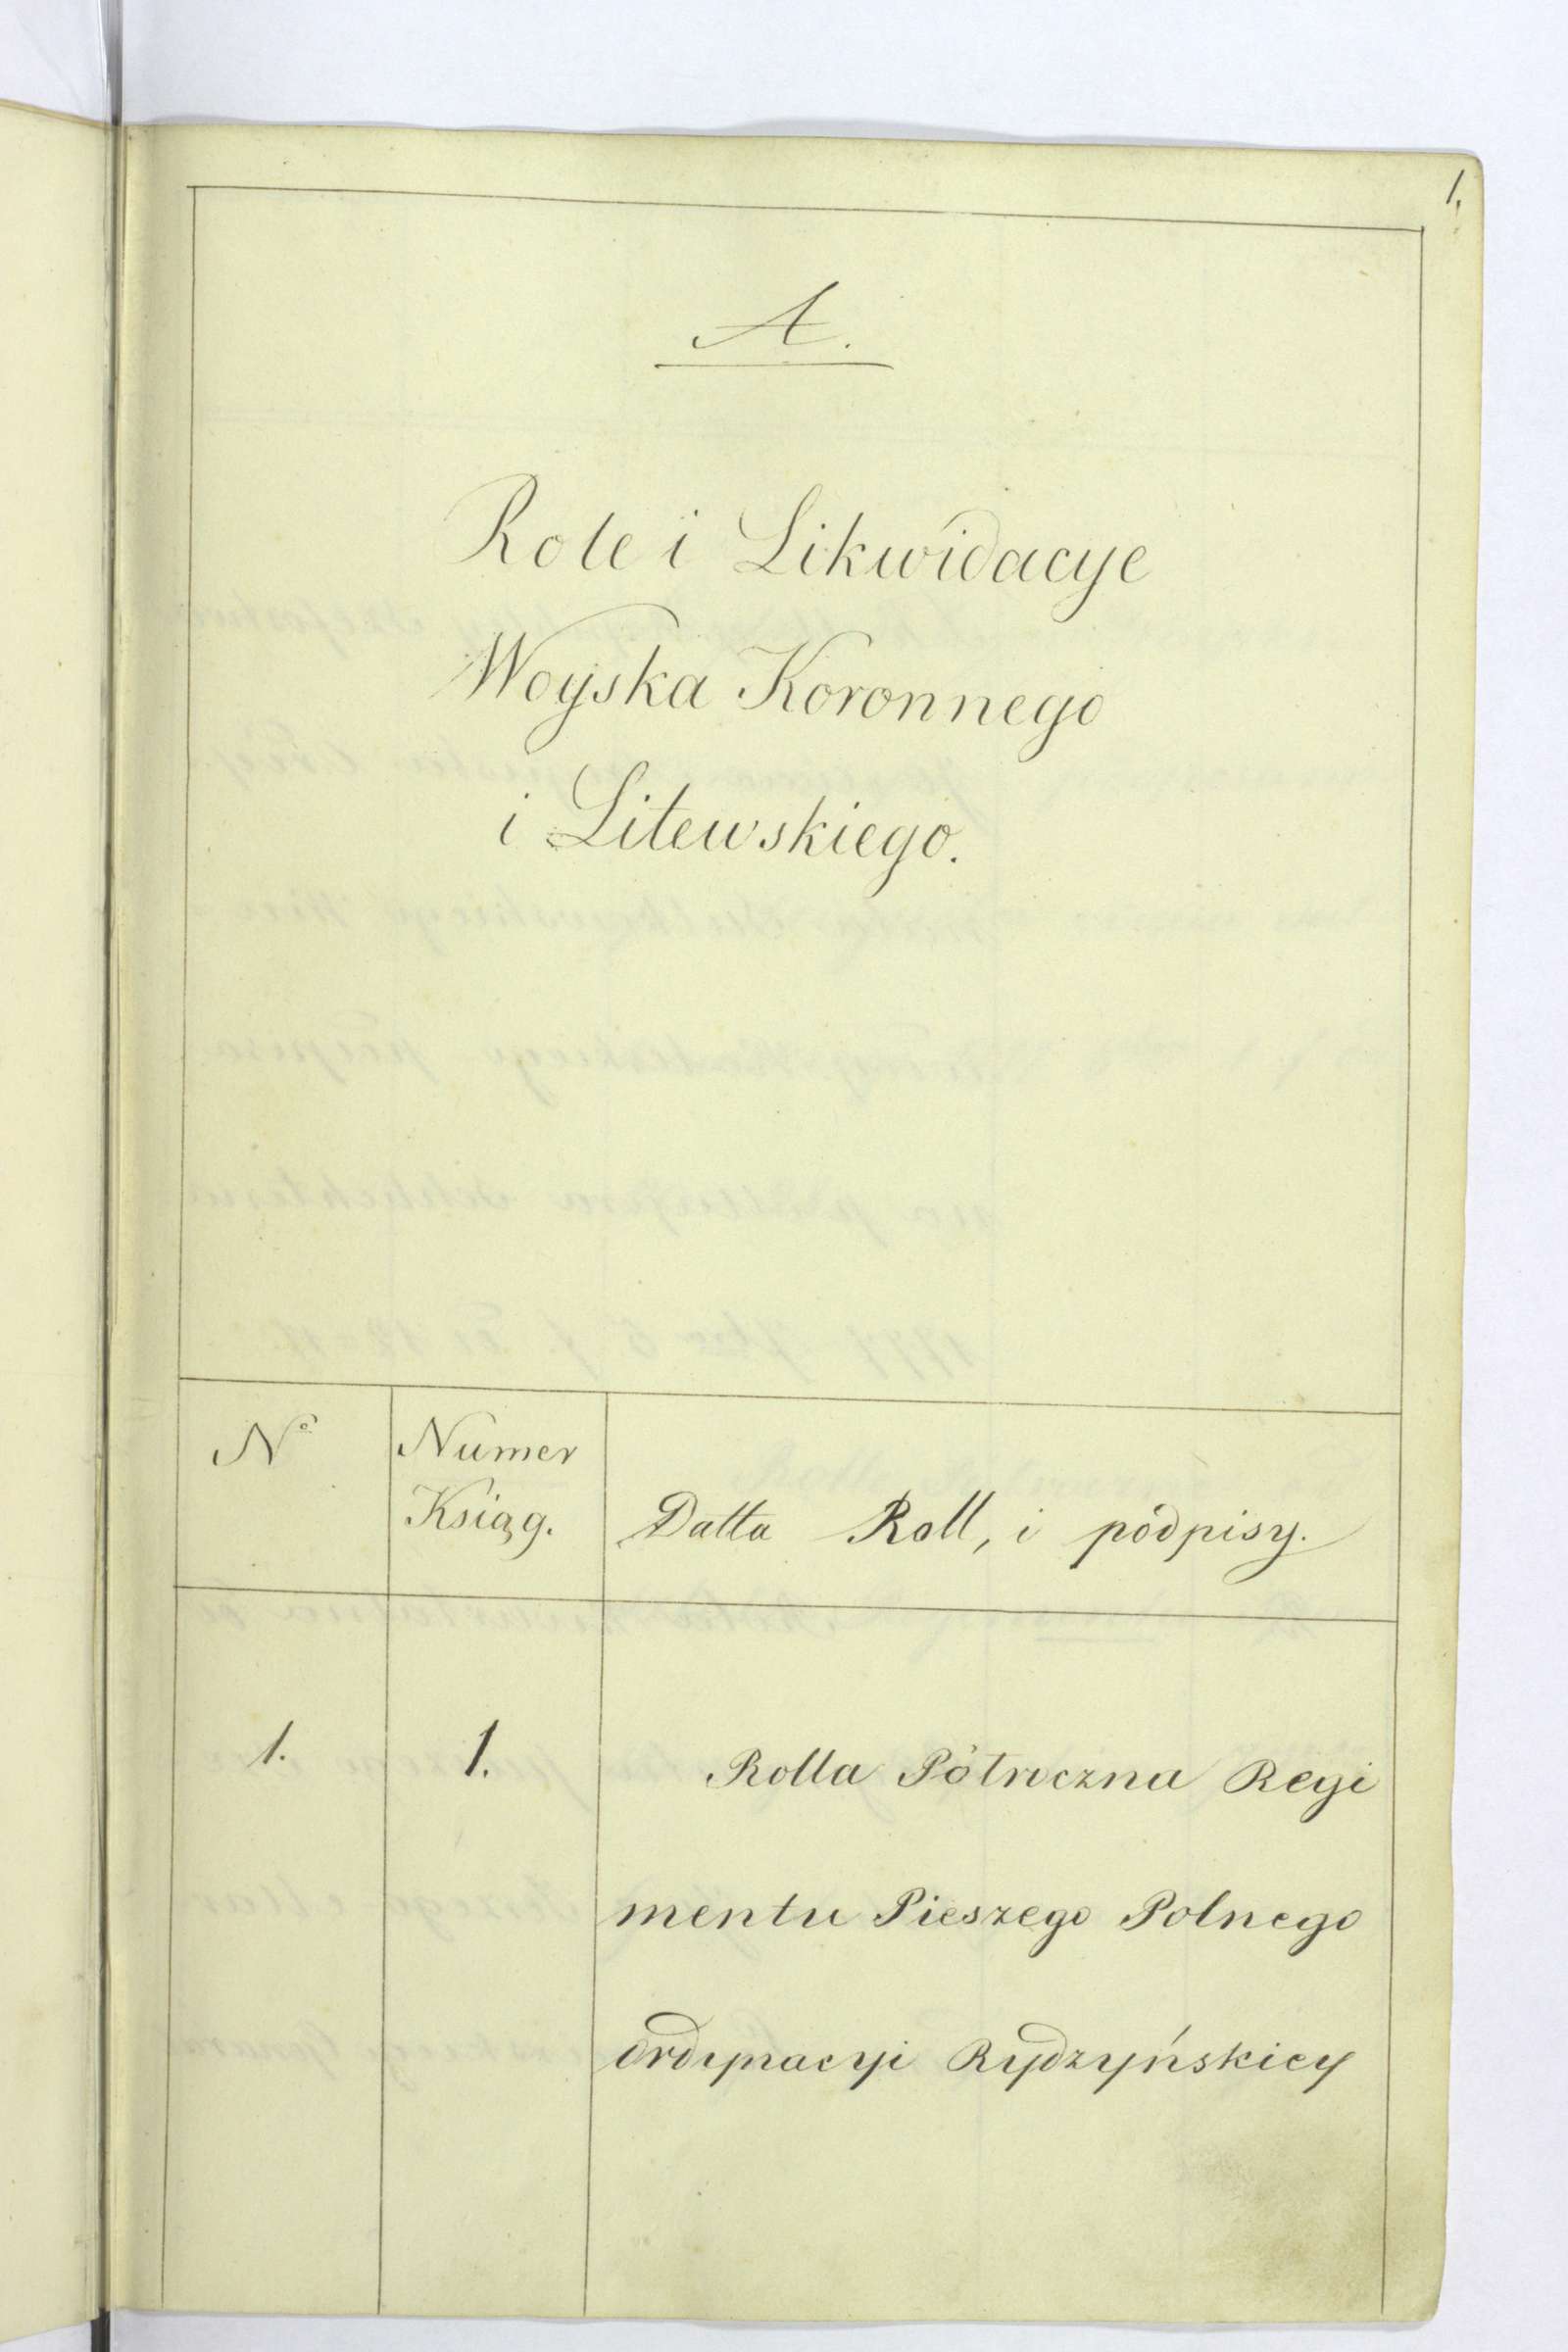 1.
A.
Role i Likwidacye
Woyska Koronnego
i Litewskiego.
No
Numer
Ksiąg.
Datta Roll, i pódpisy.
1.
1.
Rolla Półroczna Regi
mentu Pieszego Polnego
Ordynacyi Rydzyńskiey